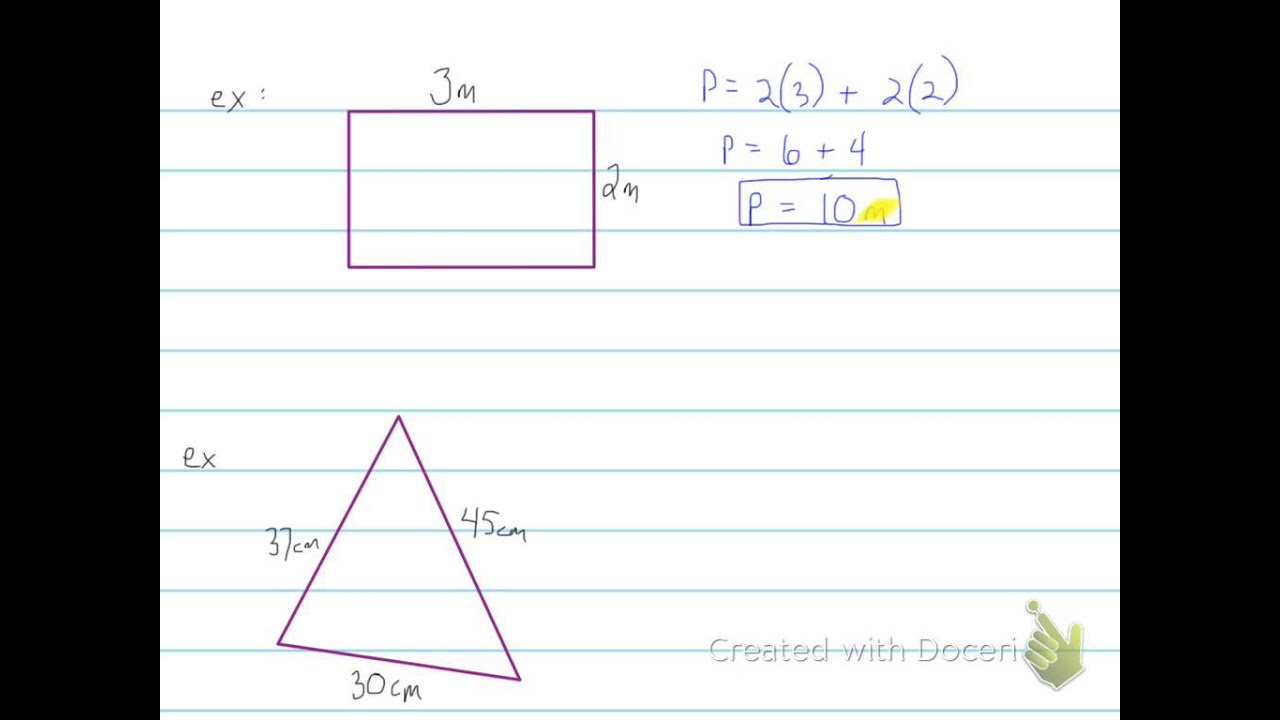 ex:
3m
2m
P = 2(3) + 2(2)
P = 6 + 4
P = 10 m
ex
37cm
45cm
30cm
Created with Doceri